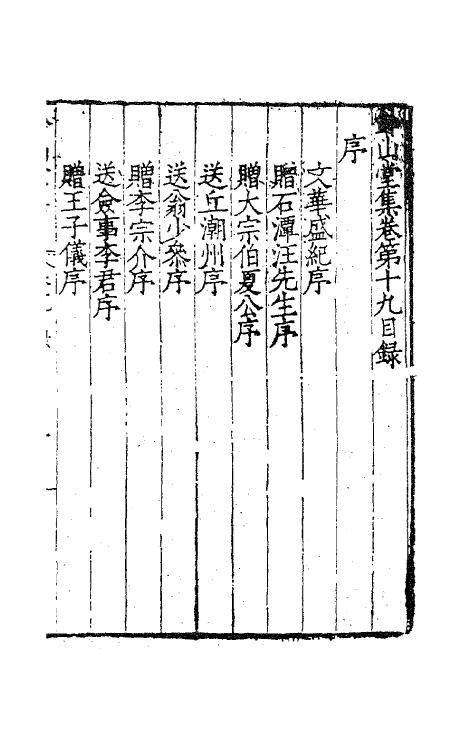 鈐山堂集卷第十九目録
序
文華盛紀序
贈石潭汪先生序
贈大宗伯夏公序
送丘潮州序
送翁少叅序
贈李宗介序
送僉事李君序
贈王子儀序